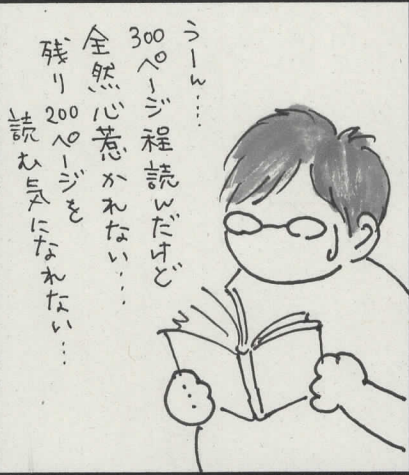 うーん…
300ページ程読んだけど
全然心惹かれない…
残り200ページを
読む気になれない…